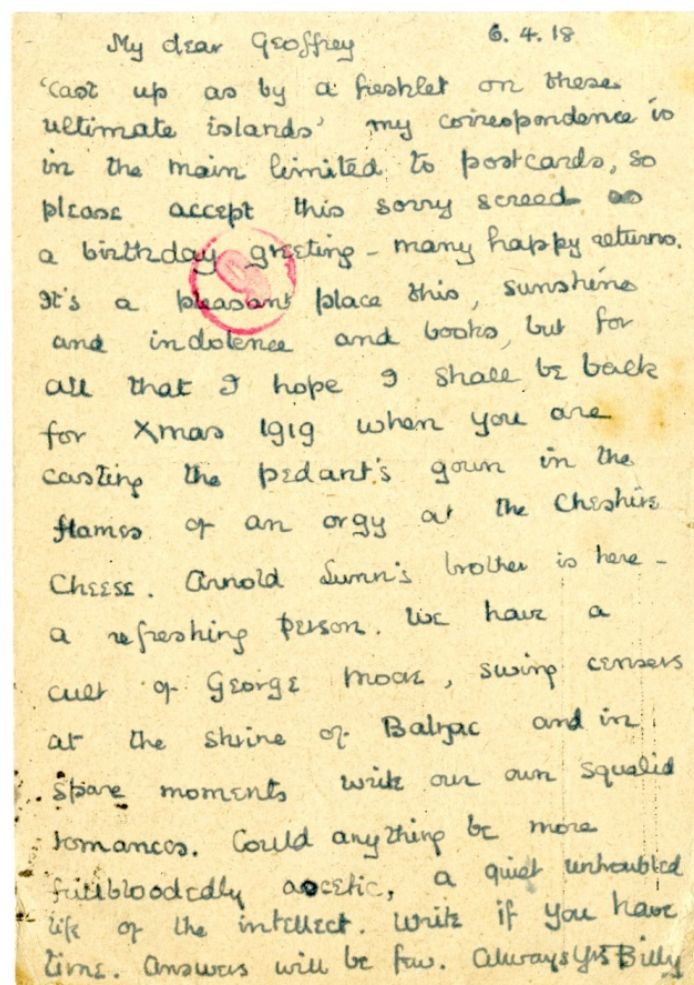 My dear Geoffrey 6.4.18
'cast up as by a freshlet on these
ultimate islands' my correspondence is
in the main limited to postcards, so
please accept this sorry screed as
a birthday greeting - many happy returns.
It's a pleasant place this, sunshine
and indolence and books, but for
all that I hope I shall be back
for Xmas 1919 when you are
casting the pedant's gown in the
flames of an orgy at the Cheshire
Cheese. Arnold Lunn's brother is here -
a refreshing person. We have a
cult of George Moore, swing censers
at the shrine of Balzac and in
spare moments write our own squalid
romances. Could anything be more
fullbloodedly ascetic, a quiet untroubled
life of the intellect. Write if you have
time. Answers will be few. Always Yrs Billy